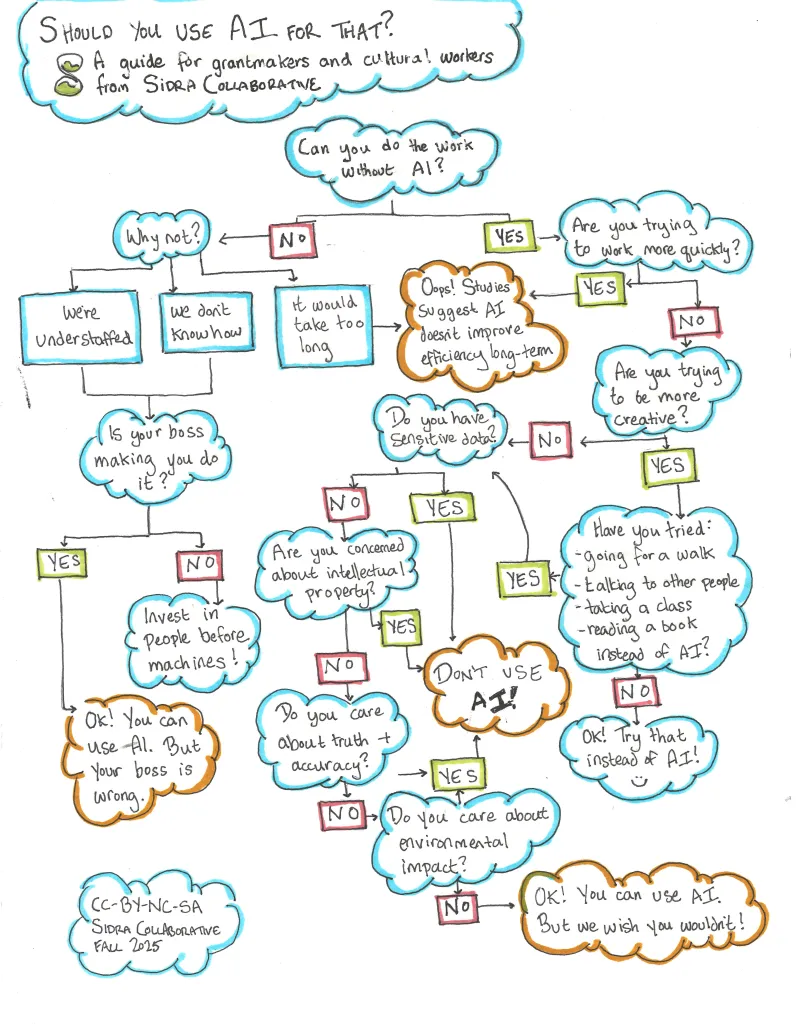 SHOULD YOU USE AI FOR THAT?
A guide for grantmakers and cultural workers
from SIDRA COLLABORATIVE
Can you do the work
without AI?
Why not?
NO
YES
Are you trying
to work more quickly?
We're
understaffed
we don't
know how
it would
take too
long
Oops! Studies
suggest AI
doesn't improve
efficiency long-term
YES
NO
Are you trying
to be more
creative?
Do you have
sensitive data?
NO
YES
Is your boss
making you do
it?
NO
YES
Have you tried:
-going for a walk
-talking to other people
-taking a class
-reading a book
instead of AI?
YES
NO
Are you concerned
about intellectual
property?
YES
YES
NO
Invest in
People before
machines!
NO
DON'T USE
AI!
NO
OK! You can
use AI. But
your boss is
wrong.
Do you care
about truth +
accuracy?
OK! Try that
instead of AI!
YES
NO
Do you care about
environmental
impact?
NO
OK! You can use AI.
But we wish you wouldn't!
CC-BY-NC-SA
SIDRA COLLABORATIVE
FALL 2025